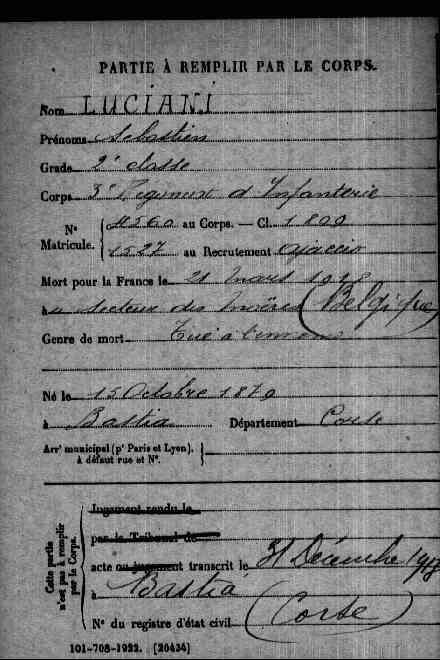 PARTIE À REMPLIR PAR LE CORPS.
Nom LUCIANI
Prénoms Sebastien
Grade 2e classe
Corps 3e Regiment d'Infanterie
No Matricule. { 11560 au Corps. — Cl. 1899
1527 au Recrutement Ajaccio
Mort pour la France le 21 Mars 1918
à Secteur des (Belgique)
Genre de mort Tué à l'ennemi
Né le 15 Octobre 1879
à Bastia Département Corse
Arrt municipal (pr Paris et Lyon), à défaut rue et No. }
Cette partie n'est pas à remplir par le Corps.
Jugement rendu le
par le Tribunal de
acte ou jugement transcrit le 31 Décembre 1918
à Bastia
No du registre d'état civil (Corse)
101-708-1922. [20434]